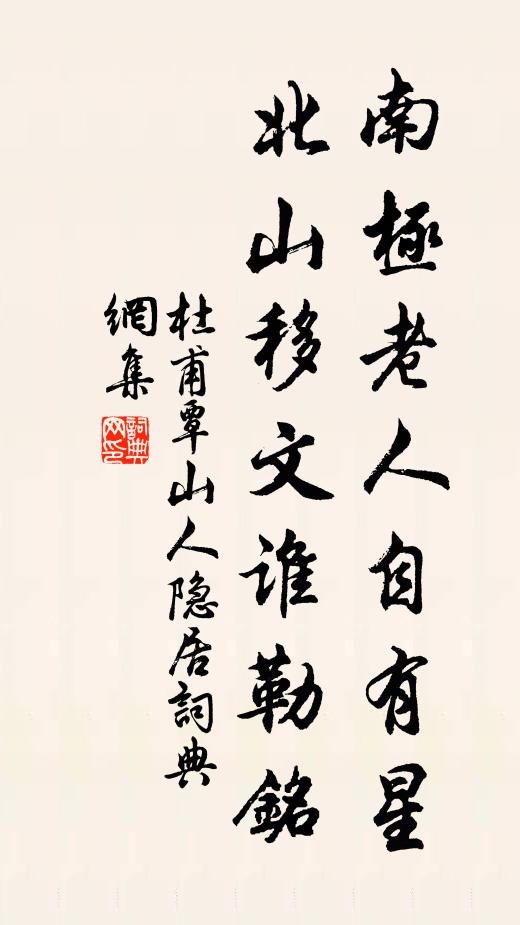 南極老人自有星
北山移文谁勒銘
杜甫覃山人隐居詞典
網集
詞典网印